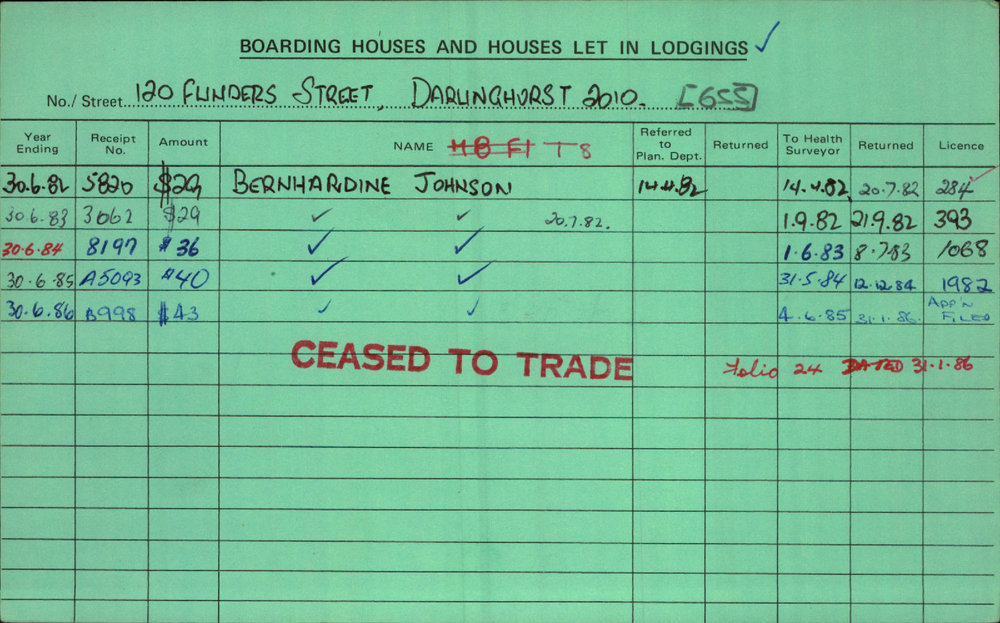 BOARDING HOUSES AND HOUSES LET IN LODGINGS ✓
No./ Street 120 FLINDERS STREET, DARLINGHURST 2010. [655]
Year Ending Receipt No. Amount NAME T8 Referred to Plan. Dept. Returned To Health Surveyor Returned Licence
30.6.82 5820 $29 BERNHARDINE JOHNSON 14.4.82 14.4.82 20.7.82 284
30.6.83 3062 $29 ✓ ✓ 20.7.82. 1.9.82 21.9.82 393
30.6.84 8197 $36 ✓ ✓ 1.6.83 8.7.83 1068
30.6.85 A5093 $40 ✓ ✓ 31.5.84 12.12.84 1982
30.6.86 B998 $43 ✓ ✓ 4.6.85 31.1.86. APP'N FILED
CEASED TO TRADE Folio 24 DATED 31.1.86